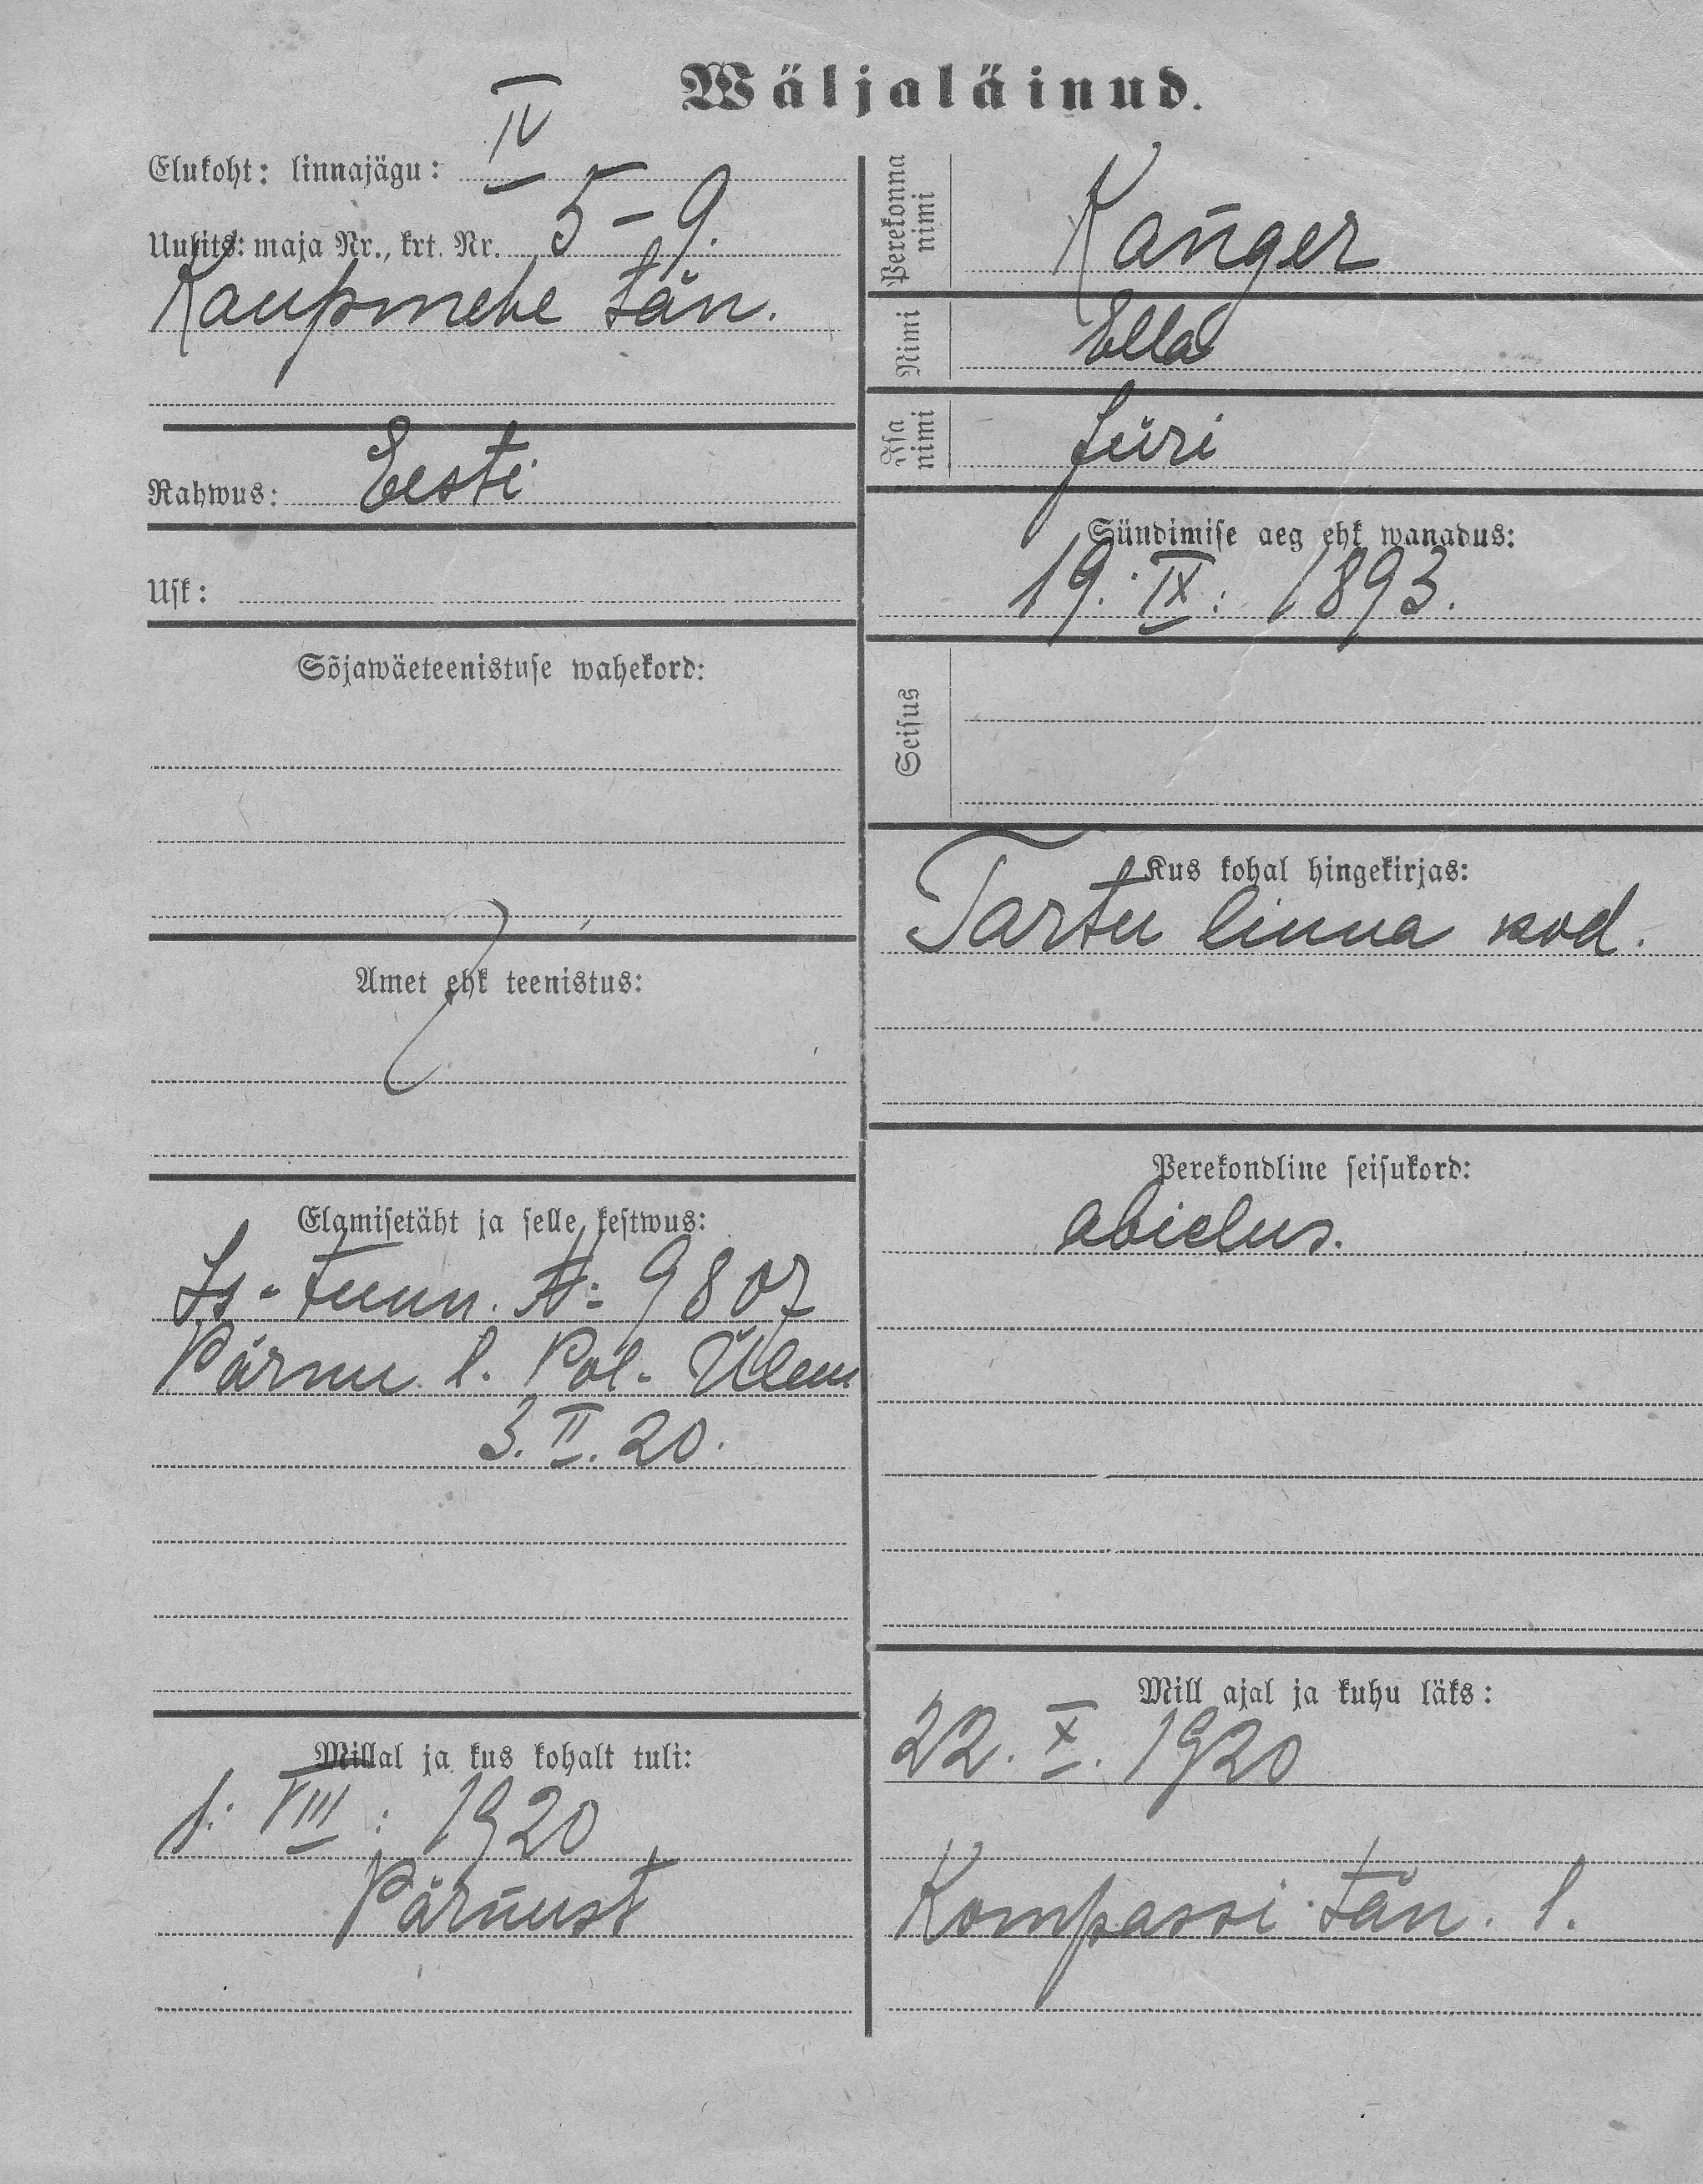 Wäljaläinud.
Elukoht: linnajägu: IV
Uulits: maja Nr., krt. Nr. 5-9.
Kaupmehe tän.
Rahwus: Eesti
Usk:
Sõjawäeteenistuse wahekord:
Amet ehk teenistus:
Elamisetäht ja selle kestwus:
Is-tunn. №: 9807
Pärnu l. Pol. Ülem
3. II. 20.
Millal ja kus kohalt tuli:
1: VIII: 1920
Pärnust
Perekonna nimi Kanger
Nimi Ella
Isa nimi Jüri
Sündimise aeg ehk wanadus:
19. IX: 1893.
Seisus
Kus kohal hingekirjas:
Tartu linna kod.
Perekondline seisukord:
abielus.
Mill ajal ja kuhu läks:
22. X. 1920
Kompassi tän. 1.